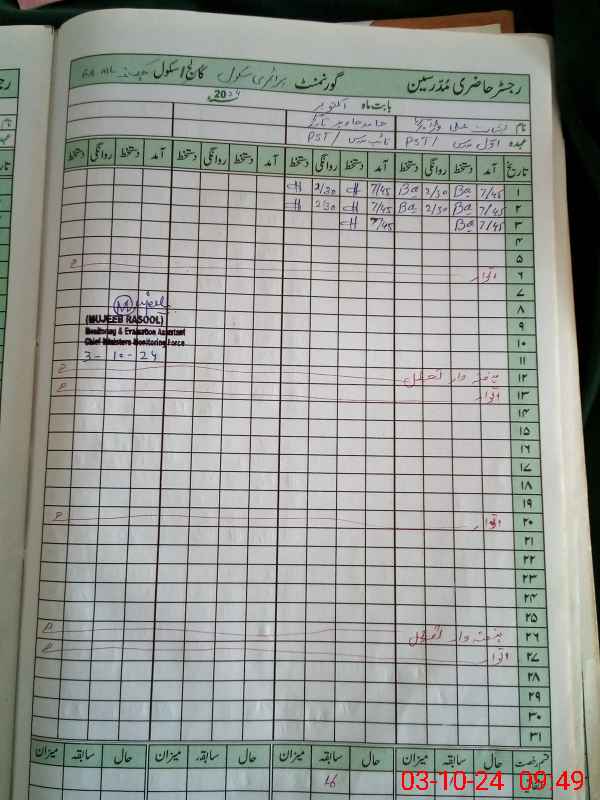 رجسٹر حاضری مُدرسین گورنمنٹ پرائمری سکول کالج / اسکول
بابت ماہ اکتوبر 2024
نام
عہدہ PST / PST /
تاریخ آمد دستخط روانگی دستخط آمد دستخط روانگی دستخط آمد دستخط روانگی دستخط آمد دستخط روانگی دستخط
۱ 7/45 Ba 2/30 Ba 7/45 H 2/30 H
۲ 7/45 Ba 2/30 Ba 7/45 H 2/30 H
۳ 7/45 Ba 7/45 H
۴
۵
۶ اتوار
۷
۸
۹
۱۰
۱۱
۱۲ ہفتہ وار تعطیل
۱۳ اتوار
۱۴
۱۵
۱۶
۱۷
۱۸
۱۹
۲۰ اتوار
۲۱
۲۲
۲۳
۲۴
۲۵
۲۶ ہفتہ وار تعطیل
۲۷ اتوار
۲۸
۲۹
۳۰
۳۱
Mujeeb
(MUJEEB RASOOL)
Monitoring & Evaluation Assistant
Chief Ministers Monitoring Force
3-10-24
قسم رخصت حال سابقہ میزان حال سابقہ میزان حال سابقہ میزان حال سابقہ میزان
03-10-24 09:49